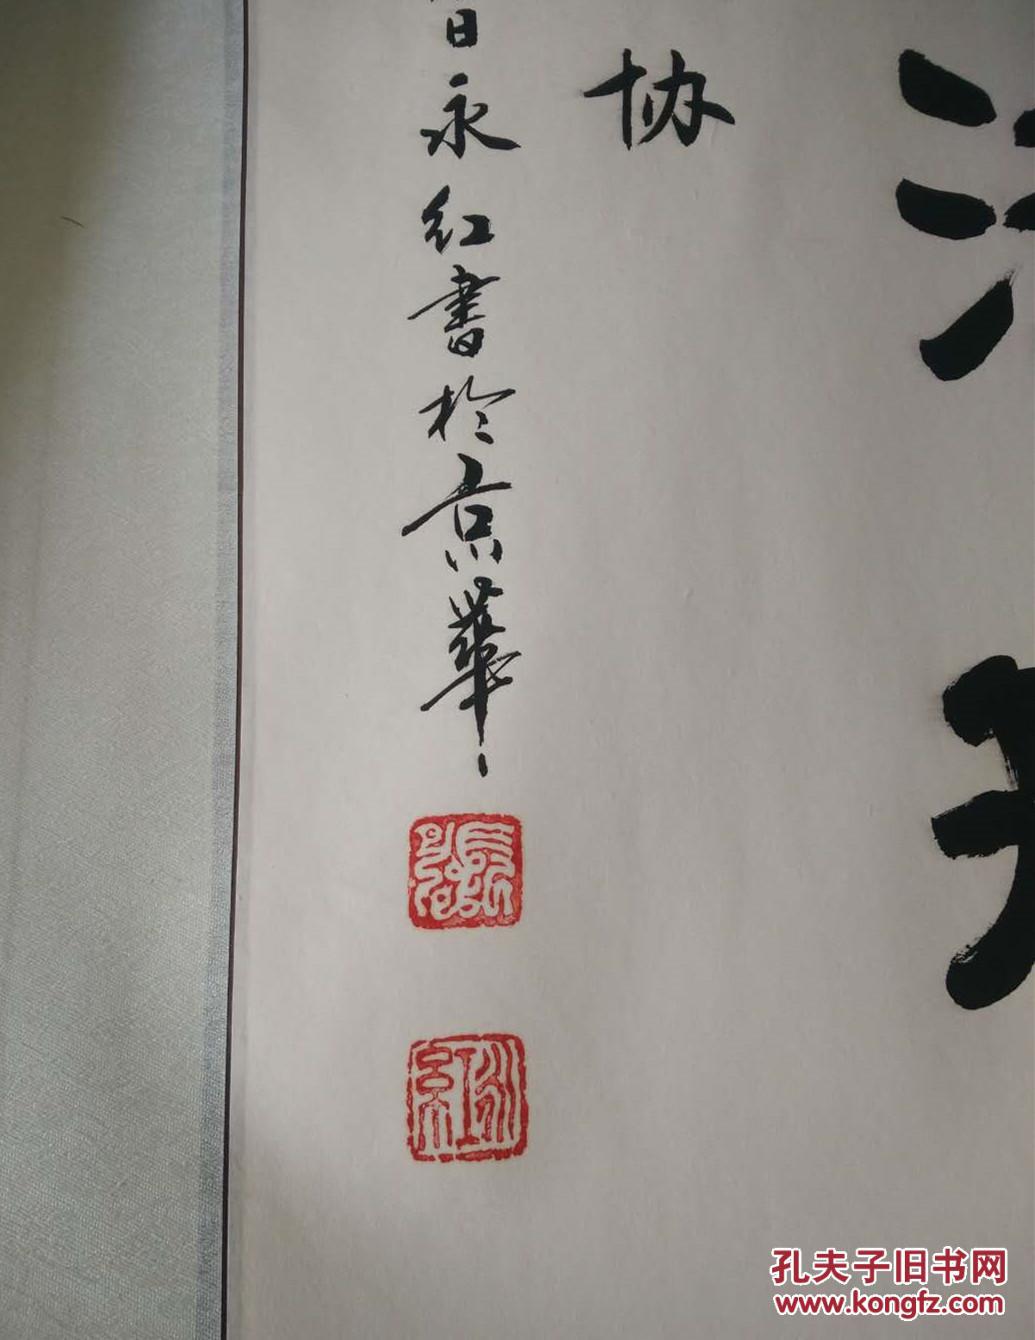 协
日永红書於京華
張
永紅
孔夫子旧书网
www.kongfz.com